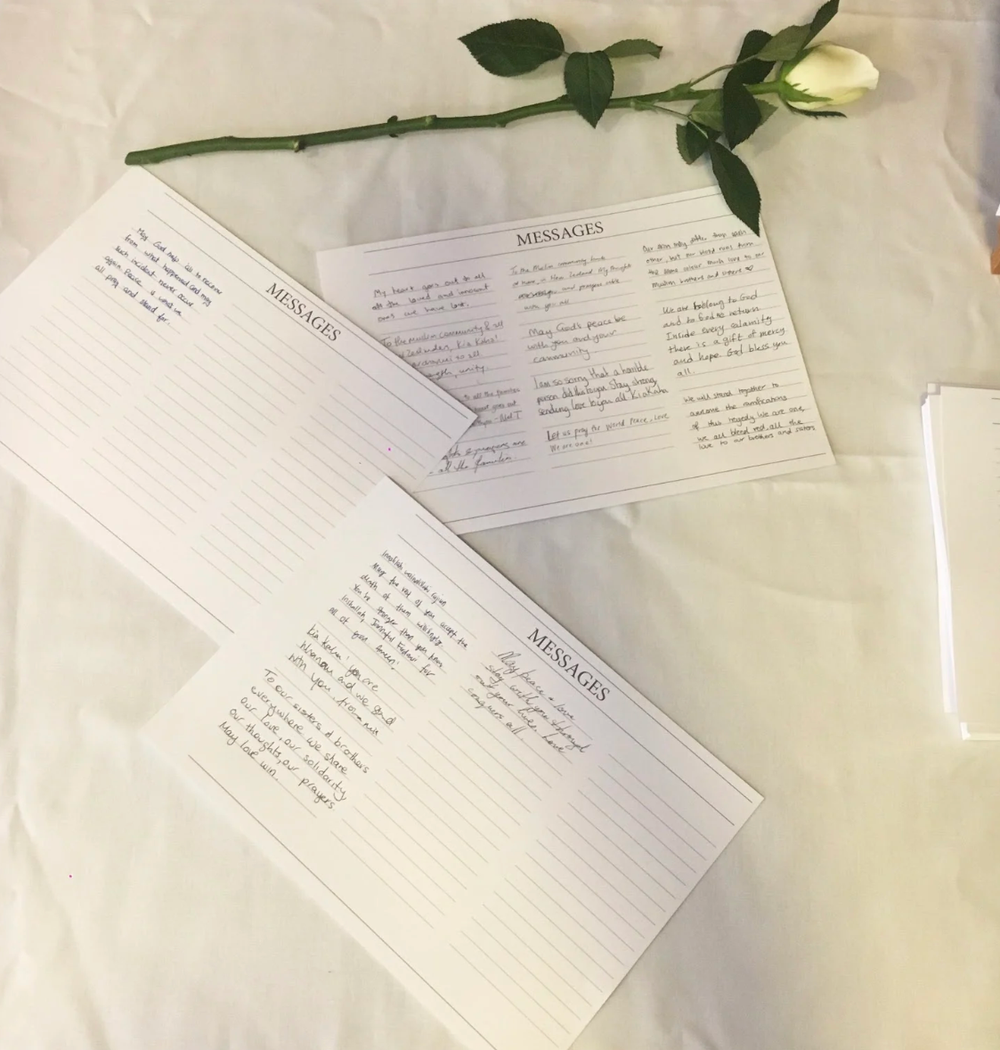 MESSAGES
May God help us to recover
from what happened and may
such incident never occur
again. Peace is what we
all pray and stand for.
MESSAGES
My heart goes out to all
all the loved and innocent
ones we have lost.
To the Muslim community &
Kia Kaha!
to all
unity.
to all the families
goes out
& prayers are
all the families
To the Muslim community
in New Zealand. My thoughts
and prayers
with you all
May God's peace be
with you and your
community
I am so sorry that a horrible
person did this to you. Stay strong,
sending love to you all Kia Kaha
Let us pray for World Peace, Love
We are one!
Our skin may
but our blood runs
the same colour much love to our
Muslim brothers and sisters
We are belong to God
and to God to return
Inside every calamity
there is a gift of mercy
and hope. God bless you
all.
We will stand together to
overcome the ramifications
of this tragedy. We are one,
we all bleed red, all the
love to our brothers and sisters
MESSAGES
May the rest of you accept the
death of them
You're stronger that you
Inshallah, for
all of you
Kia Kaha! you are
and we stand
with you
To our sisters & brothers
everywhere we share
our love, our solidarity
our thoughts, our prayers
May love win.
May peace & love
stay with you & through
out your lives. Love
conquers all.